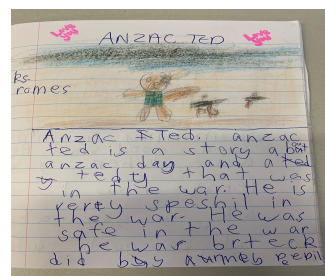 ANZAC TED
ks
rames
Anzac Ted. anzac
ted is a story abat
anzac day and a ted
tedty that was
in the war. He is
verey speshil in
the war. He was
safe in the war
he war brteck
did bay